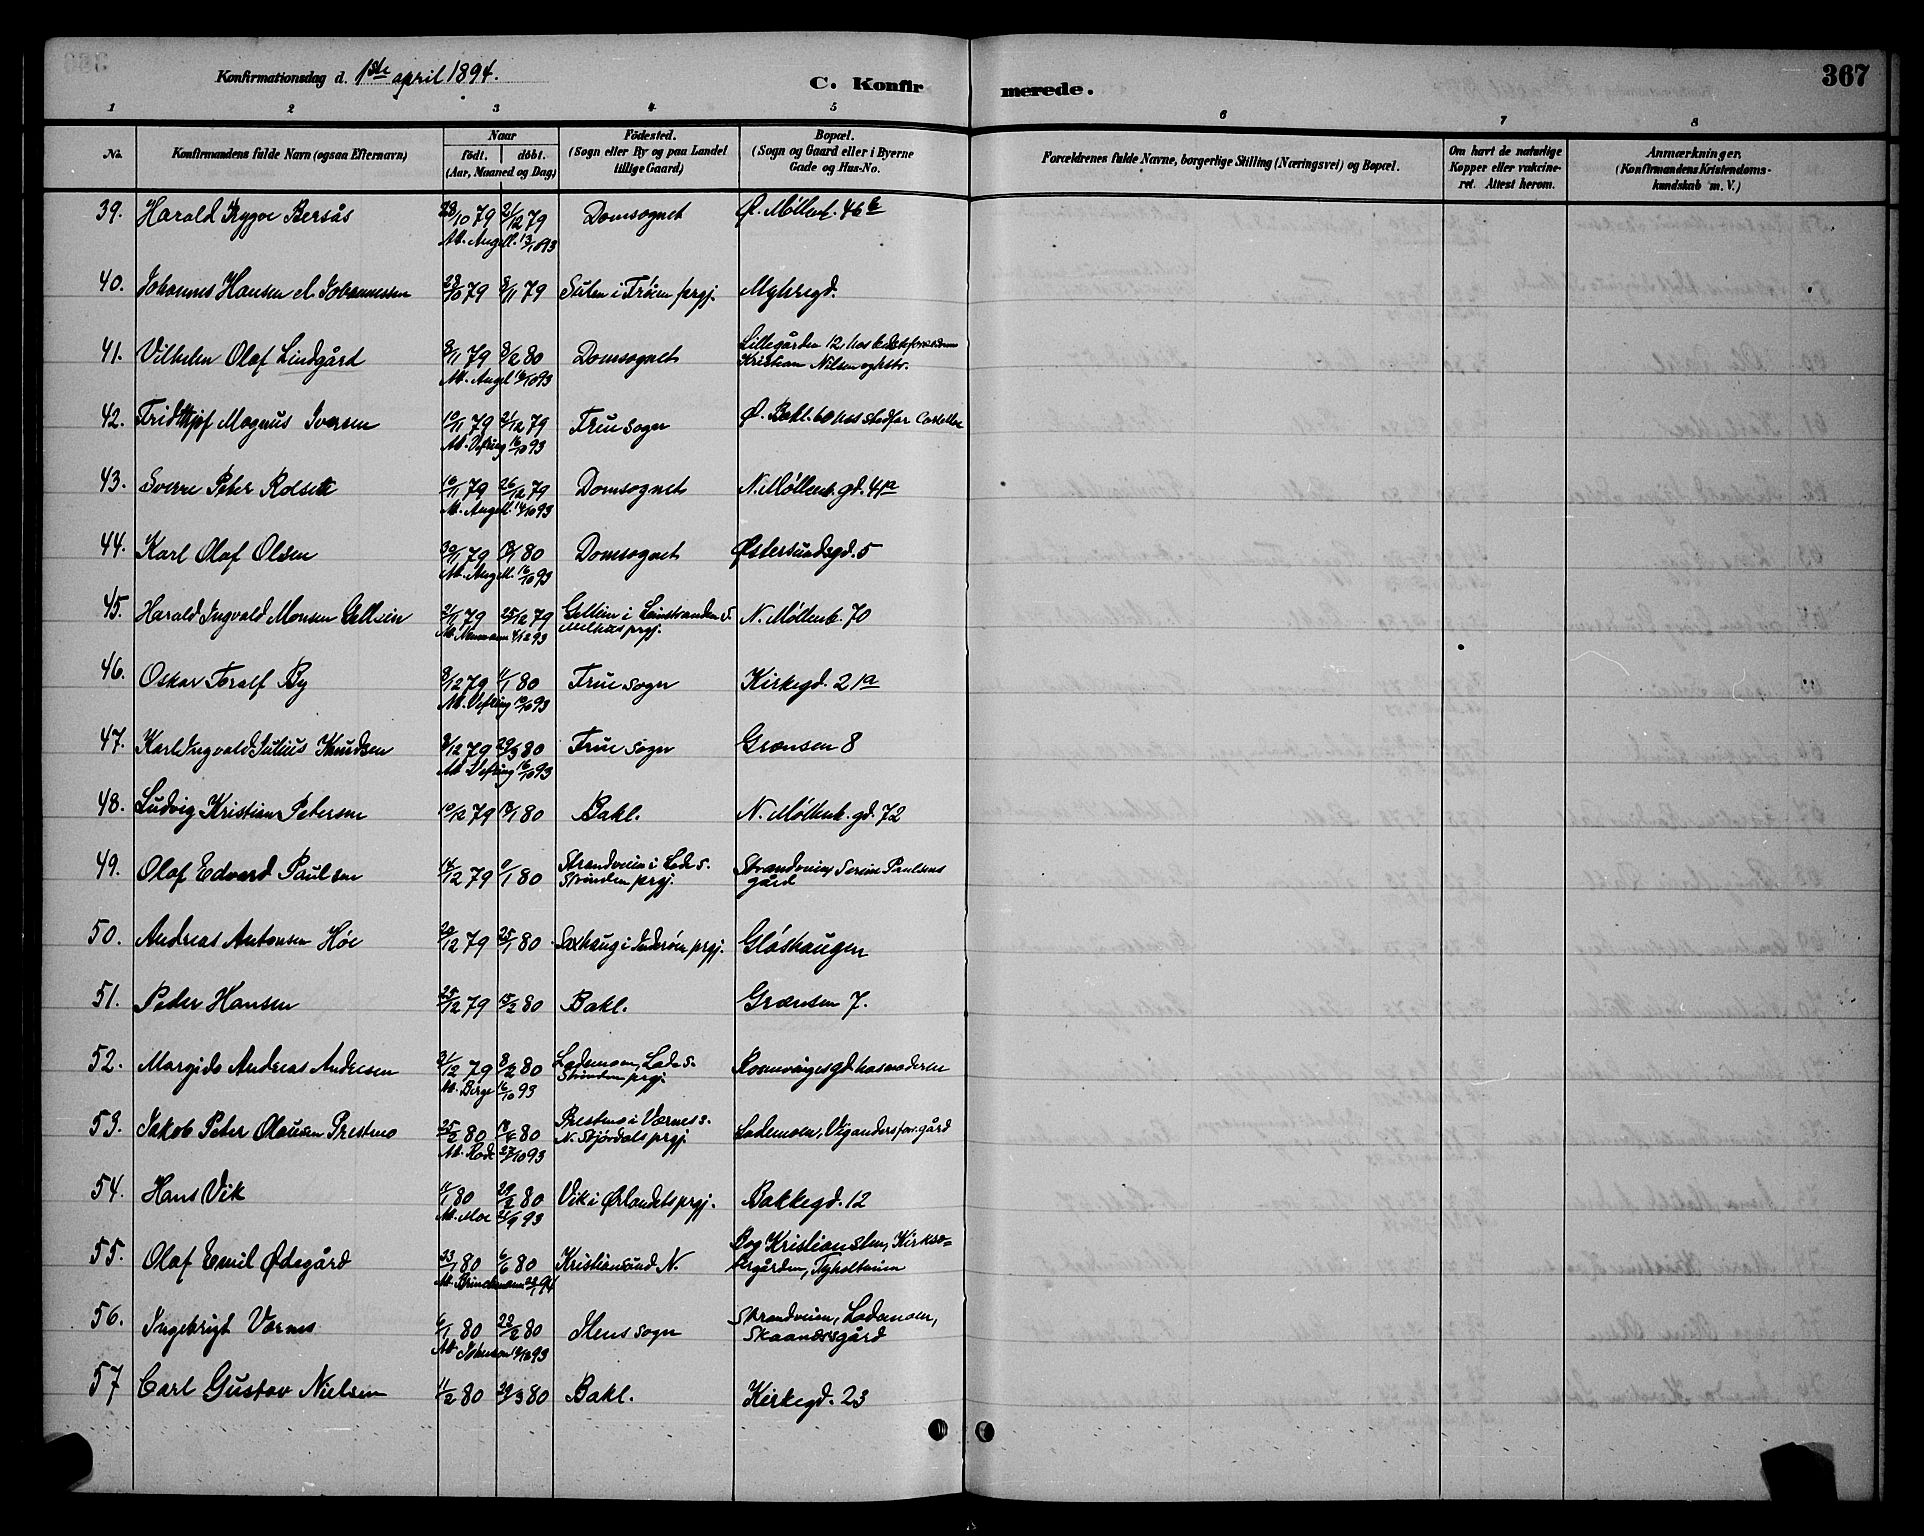 Konfirmationsdag d. 1ste april 1894.
C. Konfirmerede.
367
1 2 3 4 5 6 7 8
No. Konfirmandens fulde Navn (ogsaa Efternavn) Naar födt. döbt. (Aar, Maaned og Dag) Födested. (Sogn eller By og paa Landet tillige Gaard) Bopæl. (Sogn og Gaard eller i Byerne Gade og Hus-No. Forældrenes fulde Navne, borgerlige Stilling (Næringsvei) og Bopæl. Om havt de naturlige Kopper eller vakcineret. Attest herom. Anmærkninger. (Konfirmandens Kristendomskundskab m. V.)
39. Harald Trygve Bersås 28/10 79 21/12 79 Domsognet Ø. Møllenb. 46 b
At. Angell. 13/10 93
40. Johannes Hansen Johannessen 28/10 79 9/11 79 i Frøien prgj. Myhregd.
41. Vilhelm Olaf Lindgård 9/11 79 8/2 80 Domsognet Lillegården 12, hos
At. Angel 16/10 93 Kristian Nilsen
42. Fridthjof Magnus Iversen 10/11 79 21/12 79 Frue sogn Ø. Bakl. 60 hos stedfar
At. Vefring 16/10 93
43. Sverre Peter Rolseth 16/11 79 26/12 79 Domsognet N. Møllenb. gd. 41 a
At. Angell. 14/10 93
44. Karl Olaf Olsen 30/11 79 18/1 80 Domsognet Østersundsgd. 5
At. Angell. 16/10 93
45. Harald Ingvald Monsen Gellien 21/11 79 25/12 79 Gellien i Leinstrandens s. N. Møllenb. 70
At. Neumann 4/12 93 Melhus prgj.
46. Oskar Toralf By 9/12 79 11/1 80 Frue sogn Kirkegd. 21 a
At. Vefring 10/10 93
47. Karl Ingvald Julius Knudsen 9/12 79 29/3 80 Frue sogn Grænsen 8
At. Vefring 16/10 93
48. Ludvig Kristian Petersen 10/12 79 18/1 80 Bakl. N. Møllenb. gd. 72
49. Olaf Edvard Paulsen 14/12 79 11/1 80 Strandveien i Lade s. Strandveien, Serine Paulsens
Strinden prgj. gård
50. Andreas Antonsen Høe 20/12 79 25/1 80 Saxhaug i Inderøen prgj. Gløshaugen
51. Peder Hansen 25/12 79 15/2 80 Bakl. Grænsen 7.
52. Margido Andreas Andresen 31/12 79 8/2 80 Lademoen, Lade s. Rosenvinges gd. hos moderen
At. Berge 16/10 93 Strinden prgj.
53. Jakob Peter Olausen Prestmo 25/2 80 18/4 80 Prestmo i Værnes s. Lademoen, Viganders gård
At. Rode 27/10 93 N. Stjørdals prgj.
54. Hans Vik 11/1 80 29/2 80 Vik i Ørlandets prgj. Bakkegd. 12
At. Moe 21/9 93
55. Olaf Emil Ødegård 23/1 80 6/6 80 Kristiansund N. Bog Kristiansten, Kirkes=
At. Brinchmann 22/1 94 Tyholtveien
56. Ingebrigt Vornes 6/1 80 22/2 80 Hens sogn Strandveien, Lademoen,
93 Skaanessgård
57 Carl Gustav Nielsen 11/2 80 29/3 80 Bakl. Kirkegd. 23